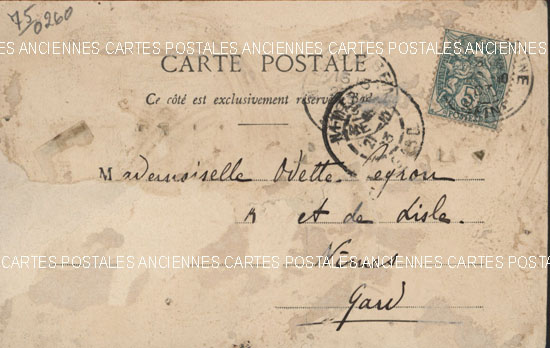 75
0260
CARTES POSTALES ANCIENNES CARTES POSTALES ANCIENNES CARTES POSTALES ANCIENNES
CARTE POSTALE
Ce côté est exclusivement réservé
Mademoiselle Odette Peyron
A et de Lisle.
Nîmes
CARTES POSTALES ANCIENNES CARTES POSTALES ANCIENNES CARTES POSTALES ANCIENNES
Gard